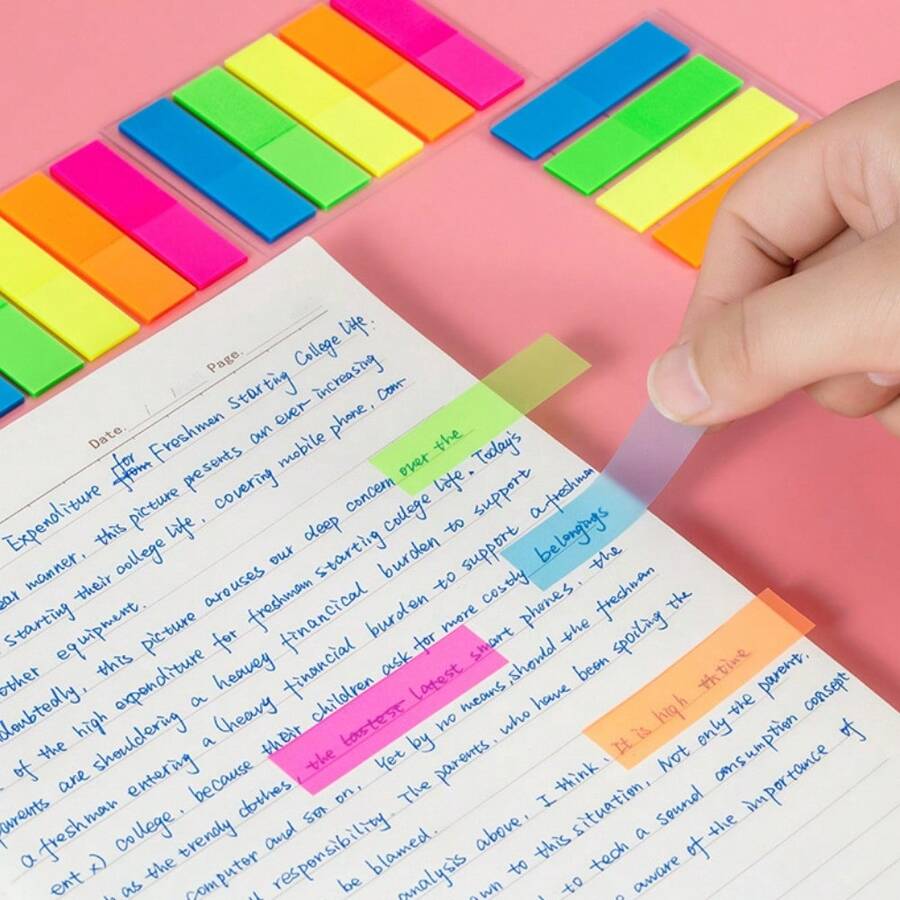 Date.   /   /   Page.
Expenditure for from Freshmen Starting College Life.
ear manner, this picture presents an ever increasing
starting their college life, covering mobile phone, com-
other equipment.
doubtedly, this picture arouses our deep concern over the
of the high expenditure for freshman starting college life. Today's
parents are shouldering a heavy financical burden to support
a freshman entering a (heavy financial burden to support a freshman
ent x) college, because their children ask for more costly belongings
h as the trendy clothes, the tastest latest smart phones, the
computer and sor on, Yet by no means should the freshman
ll responsibility. The parents, who have been spoiling the
be blamed.
analysis above, I think, It is high thtime
awn to this situation, Not only the parents,
d to tech a sound consumption consept
e aware of the importance of